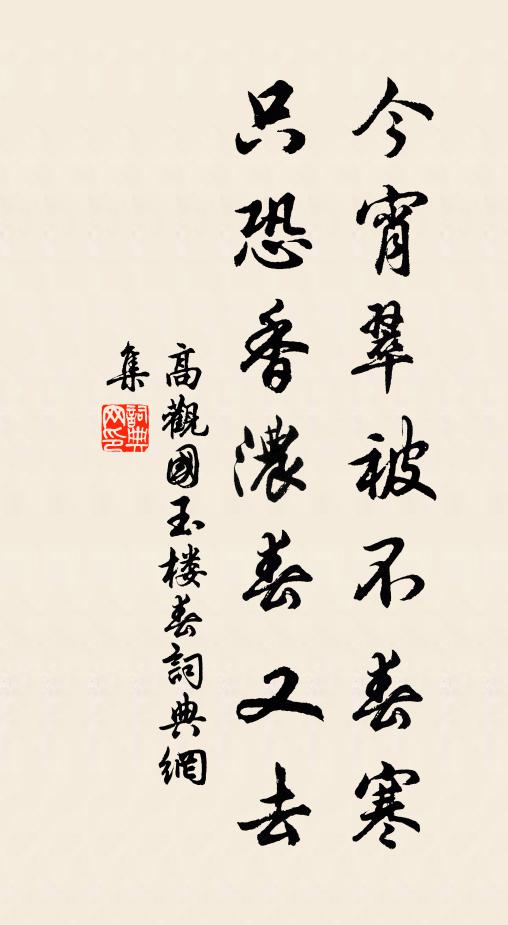 今宵翠被不春寒
只恐香濃春又去
高觀國玉楼春詞典網
集
詞典
网印